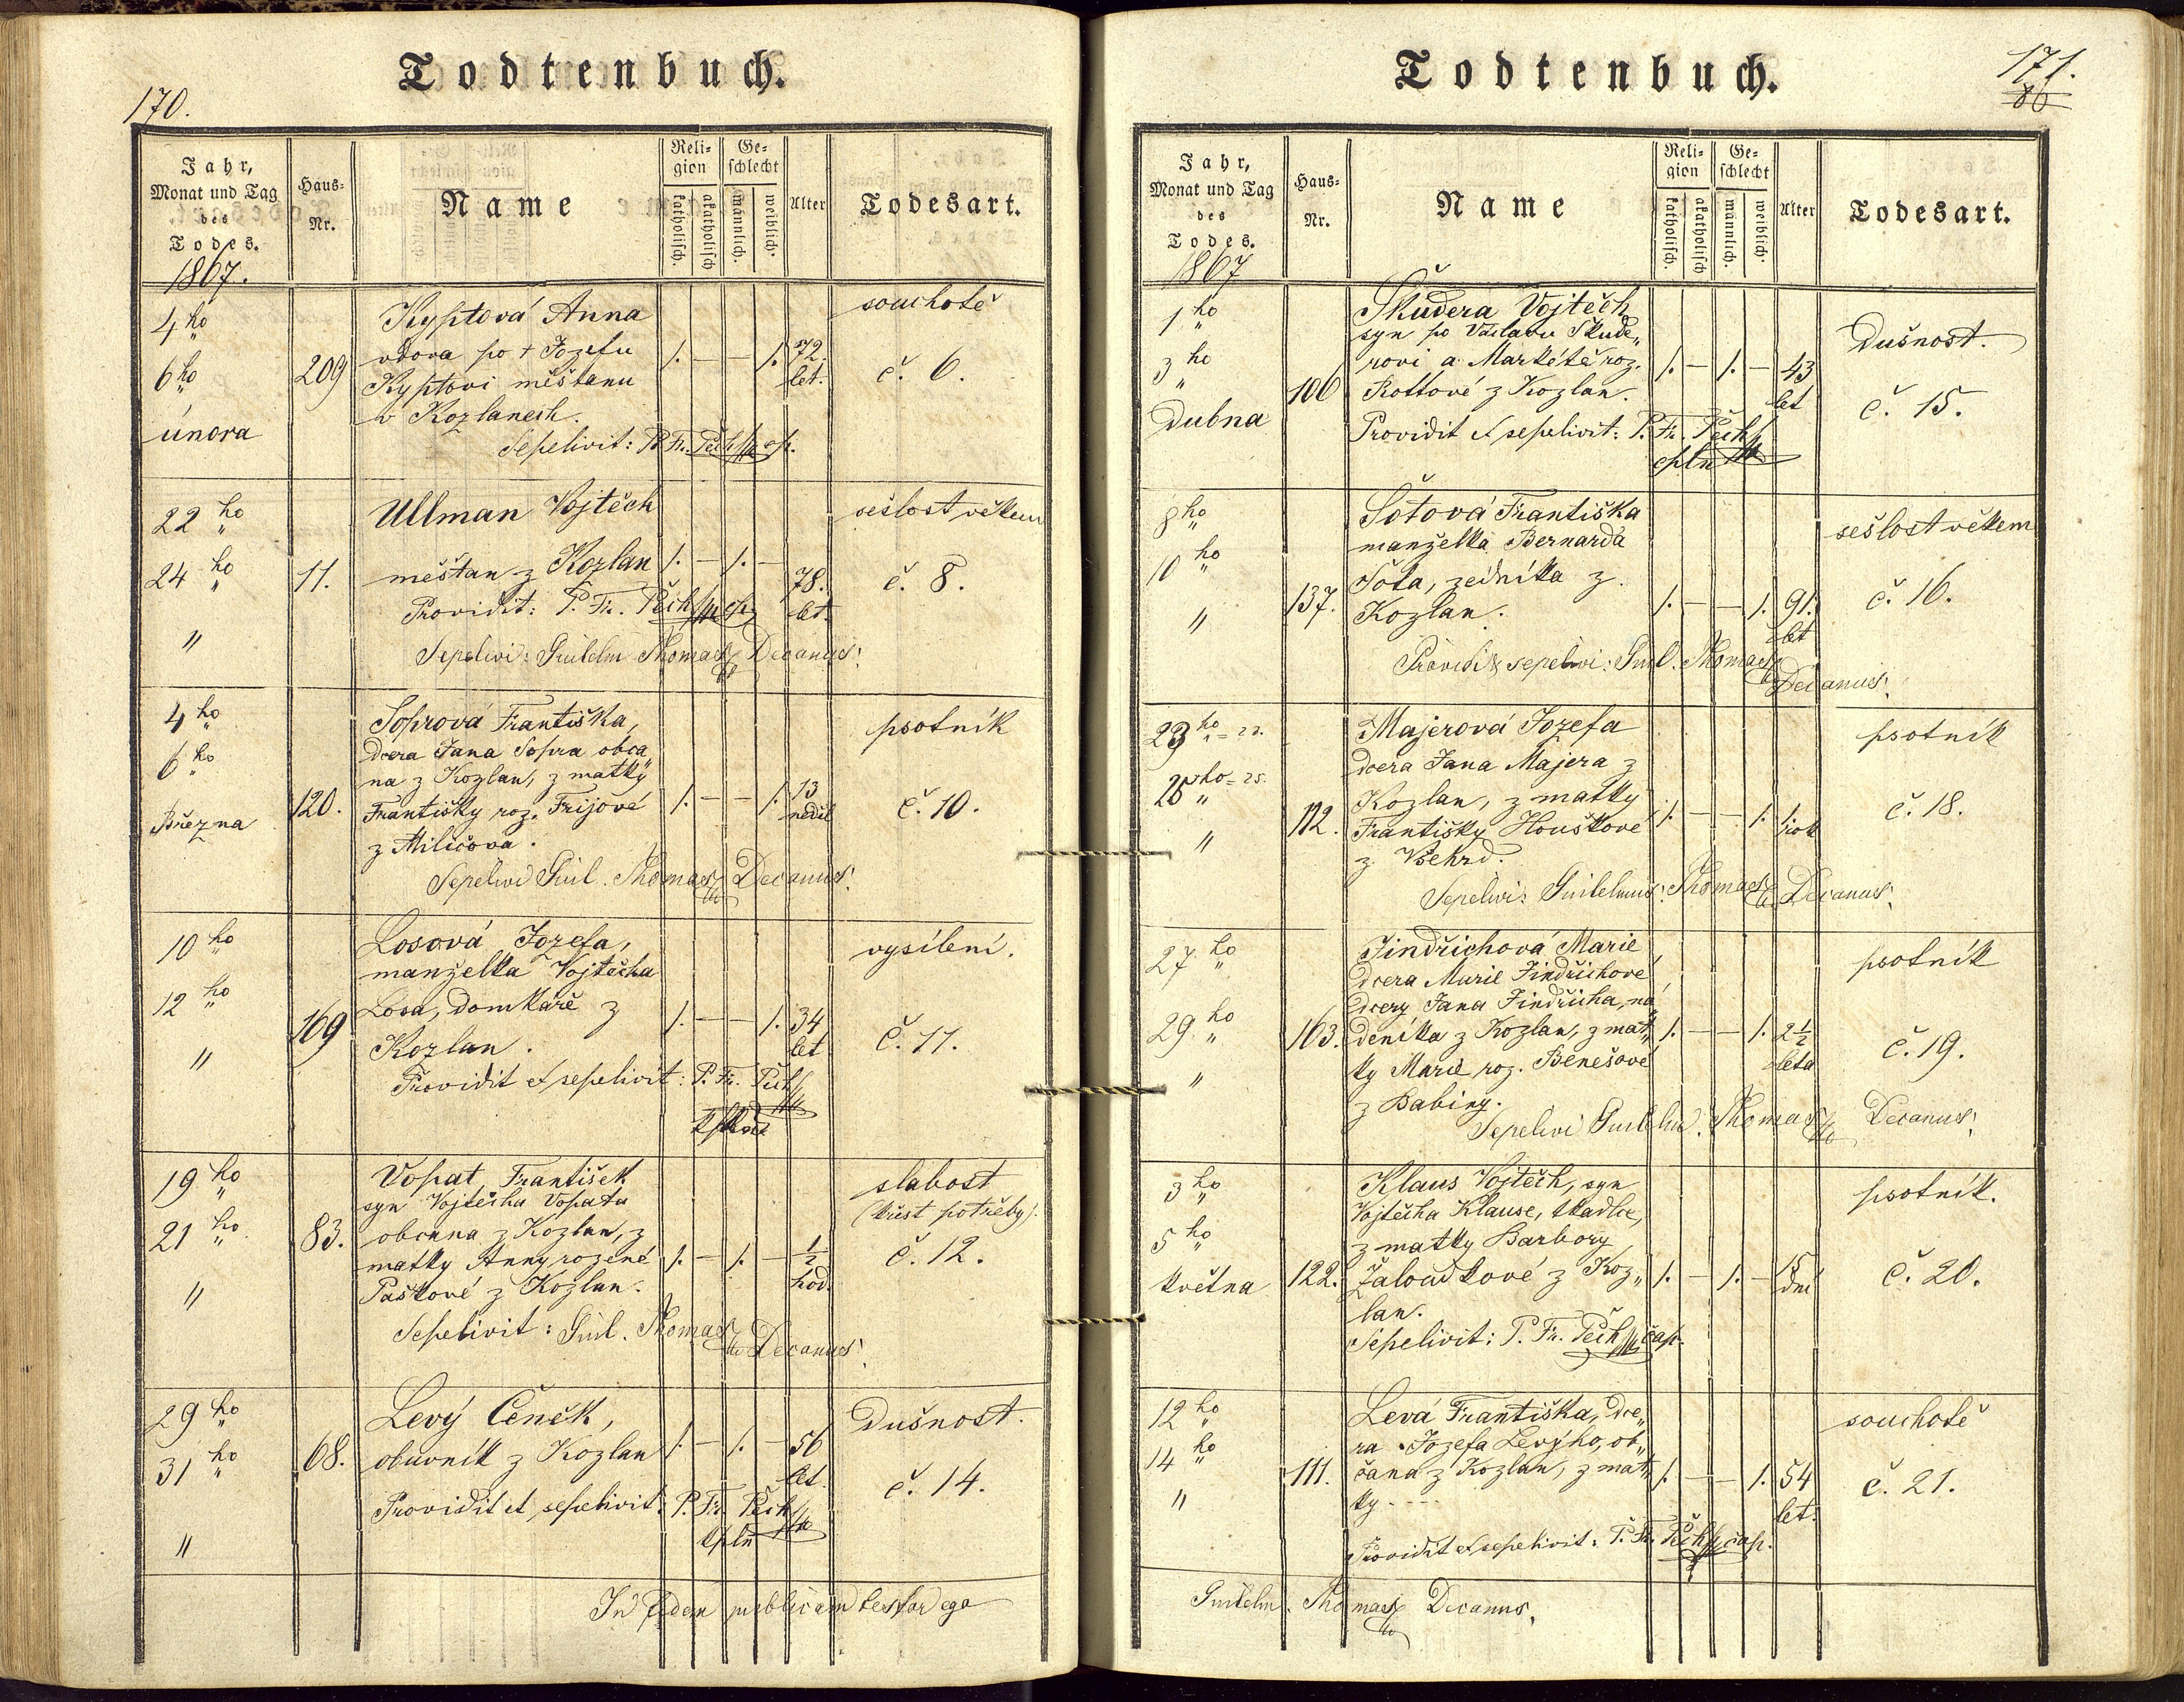 Todtenbuch.
170.
Jahr, Monat und Tag des Todes.
1867.
Haus-Nr.
Name
Religion
katholisch.
akatholisch
Geschlecht
männlich.
weiblich.
Alter
Todesart.
4ho
6ho
února
209
Kyptová Anna
vdova po + Jozefu
Kyptovi měštanu
v Kozlanech.
Sepelivit: P. Fr. Pech
1. — — 1.
72. let.
souchotě
č. 6.
22 ho
24 ho
"
11.
Ullman Vojtěch
měštan z Kozlan
Providit: P. Fr. Pech
Sepelivi: Guilelm Thomas Decanus.
1. — 1. —
78. let.
sešlost věkem
č. 8.
4 ho
6 ho
Března
120.
Soprová Františka,
dcera Jana Sopra obča„
na z Kozlan, z matky
Františky roz. Frijové
z Miličova.
Sepelivi Guil. Thomas Decanus.
1. — — 1.
13 neděl
psotník
č. 10.
10 ho
12 ho
"
169
Losová Jozefa,
manželka Vojtěcha
Losa, domkáře z
Kozlan.
Providit et sepelivit: P. Fr. Pech
1. — — 1.
34 let
vysílení.
č. 11.
19 ho
21 ho
"
83.
Vopat František
syn Vojtěcha Vopata
občana z Kozlan, z
matky Anny rozené
Paškové z Kozlan.
Sepelivit: Guil. Thomas Decanus.
1. — 1. —
1/2 hod.
slabost
(křest potřeby).
č. 12.
29 ho
31 ho
"
68.
Levý Čeněk,
obuvník z Kozlan
Providit et sepelivit: P. Fr. Pech
cpln
1. — 1. —
56 let.
Dušnost.
č. 14.
In fidem publicam testor ego
Todtenbuch.
171.
86
Jahr, Monat und Tag des Todes.
1867
Haus-Nr.
Name
Religion
katholisch.
akatholisch
Geschlecht
männlich.
weiblich.
Alter
Todesart.
1 ho
3 ho
Dubna
106
Škudera Vojtěch
syn po Václavu Škude„
rovi a Markétě roz.
Rottové z Kozlan.
Providit et sepelivit: P. Fr. Pech
cpln
1. — 1. —
43 let
Dušnost.
č. 15.
8 ho
10 ho
"
137.
Šotová Františka
manželka Bernarda
Šota, zedníka z
Kozlan.
Providi & sepelivi: Guil. Thomas
Decanus.
1. — — 1.
91. let
sešlost věkem
č. 16.
23 ho = 23.
25 ho = 25.
"
112.
Majerová Jozefa
dcera Jana Majera z
Kozlan, z matky
Františky Houškové
z Všehrd.
Sepelivi: Guilelmus Thomas Decanus.
1. — — 1.
1 rok
psotník
č. 18.
27 ho
29 ho
"
163.
Jindřichová Marie
dcera Marie Jindřichové
dcery Jana Jindřicha, ná„
deníka z Kozlan, z mat„
ky Marie roz. Benešové
z Babiny.
Sepelivi Guilelm. Thomas Decanus.
1. — — 1.
2 1/2 leta
psotník
č. 19.
3 ho
5 ho
května
122.
Klaus Vojtěch, syn
Vojtěcha Klause, tkadlce,
z matky Barbory
Žaloudkové z Koz„
lan.
Sepelivit: P. Fr. Pech cap.
1. — 1. —
15 dní
psotník.
č. 20.
12 ho
14 ho
"
111.
Levá Františka, dce„
ra Jozefa Levýho, ob„
čana z Kozlan, z mat„
ky - - -
Providit et sepelivit: P. Fr. Pech cap.
1. — — 1.
54 let.
souchotě
č. 21.
Guilelm. Thomas Decanus.